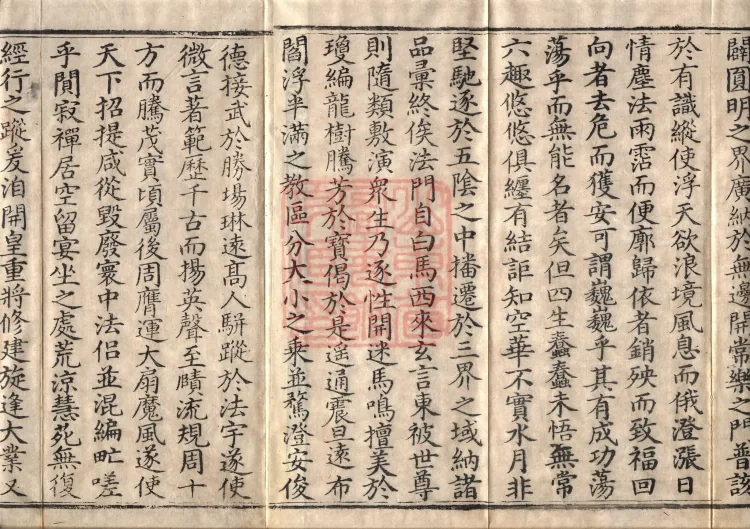 闢圓明之界廣納於無邊開常樂之門普該
於有識縱使浮天欲浪境風息而俄澄漲日
情塵法雨霑而便廓歸依者銷殃而致福回
向者去危而獲安可謂巍巍乎其有成功蕩
蕩乎而無能名者矣但四生蠢蠢未悟無常
六趣悠悠俱纏有結詎知空華不實水月非
堅馳逐於五陰之中播遷於三界之域納諸
品彙終俟法門自白馬西來玄言東被世尊
則隨類敷演衆生乃逐性開迷馬鳴擅美於
瓊編龍樹騰芳於寶偈於是遥通震旦遠布
閻浮半滿之教區分大小之乘並騖澄安俊
德接武於勝場琳遠髙人駢蹤於法宇遂使
微言著範歷千古而揚英聲至賾流規周十
方而騰茂實頃屬後周膺運大扇魔風遂使
天下招提咸從毀廢寰中法侣並混編甿嗟
乎閴寂禪居空留宴坐之處荒涼慧苑無復
經行之蹤爰洎開皇重將修建旋逢大業又